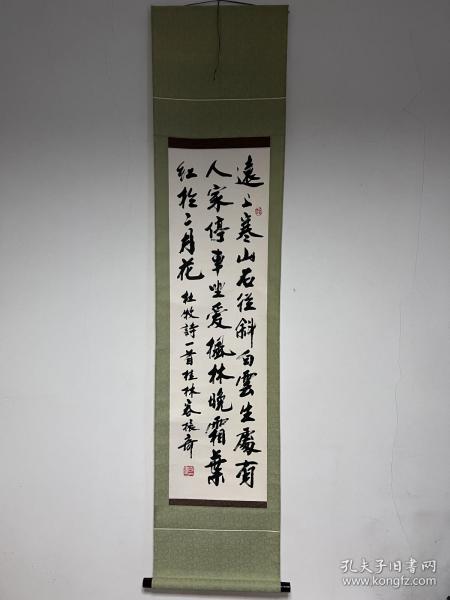 遠上寒山石徑斜白雲生處有
人家停車坐愛楓林晚霜葉
紅於二月花 杜牧詩一首桂林
孔夫子旧书网
www.kongfz.com